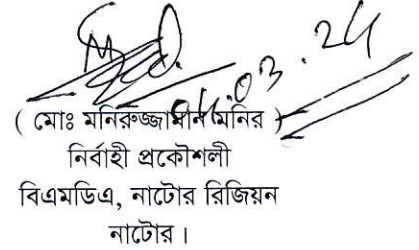 04.03.24
( মোঃ মনিরুজ্জামান মনির )
নির্বাহী প্রকৌশলী
বিএমডিএ, নাটোর রিজিয়ন
নাটোর।